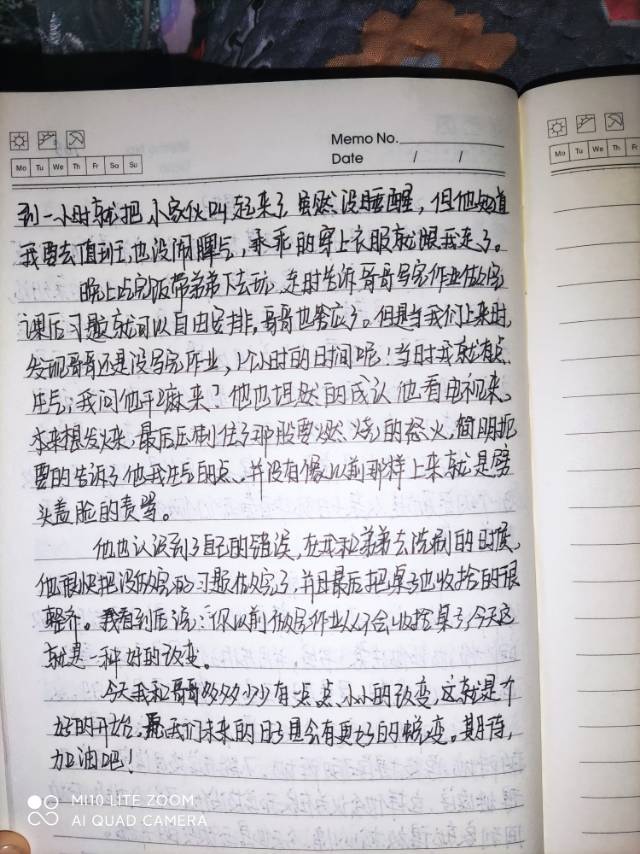 Memo No.
Date / /
Mo Tu We Th Fr Sa Su
到一小时就把小家伙叫起来了虽然没睡醒，但他知道
我要去值班，也没闹脾气，乖乖的穿上衣服就跟我走了。
晚上吃完饭带弟弟下去玩，走时告诉哥哥写完作业做完
课后习题就可以自由安排，哥哥也答应了。但是当我们上来时，
发现哥哥还是没写完作业，1个小时的时间呢！当时我就有点
生气，我问他干嘛来？他也坦然的成认他看电视来，
本来想发火来，最后压制住了那股要燃烧的怒火，简明扼
要的告诉了他我生气的点、并没有像以前那样上来就是劈
头盖脸的责骂。
他也认识到了自己的错误，在我和弟弟去洗刷的时候，
他很快把没做完的习题做完了，并且最后把桌子也收拾的很
整齐。我看到后说：你以前做完作业从不会收拾桌子，今天这
就是一种好的改变。
今天我和哥哥多多少少有一点点小小的改变，这就是个
好的开始，我们未来的日子里会有更好的蜕变。期待，
加油吧！
Mo Tu We Th
MI 10 LITE ZOOM
AI QUAD CAMERA